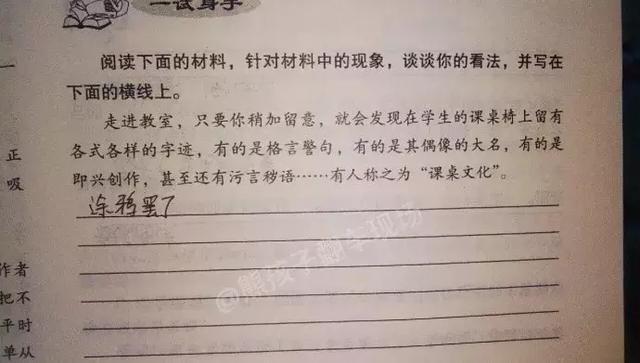 一试身手
阅读下面的材料，针对材料中的现象，谈谈你的看法，并写在
下面的横线上。
走进教室，只要你稍加留意，就会发现在学生的课桌椅上留有
各式各样的字迹，有的是格言警句，有的是其偶像的大名，有的是
即兴创作，甚至还有污言秽语……有人称之为“课桌文化”。
涂鸦罢了
@熊孩子翻车现场
正
吸
作者
把不
平时
单从